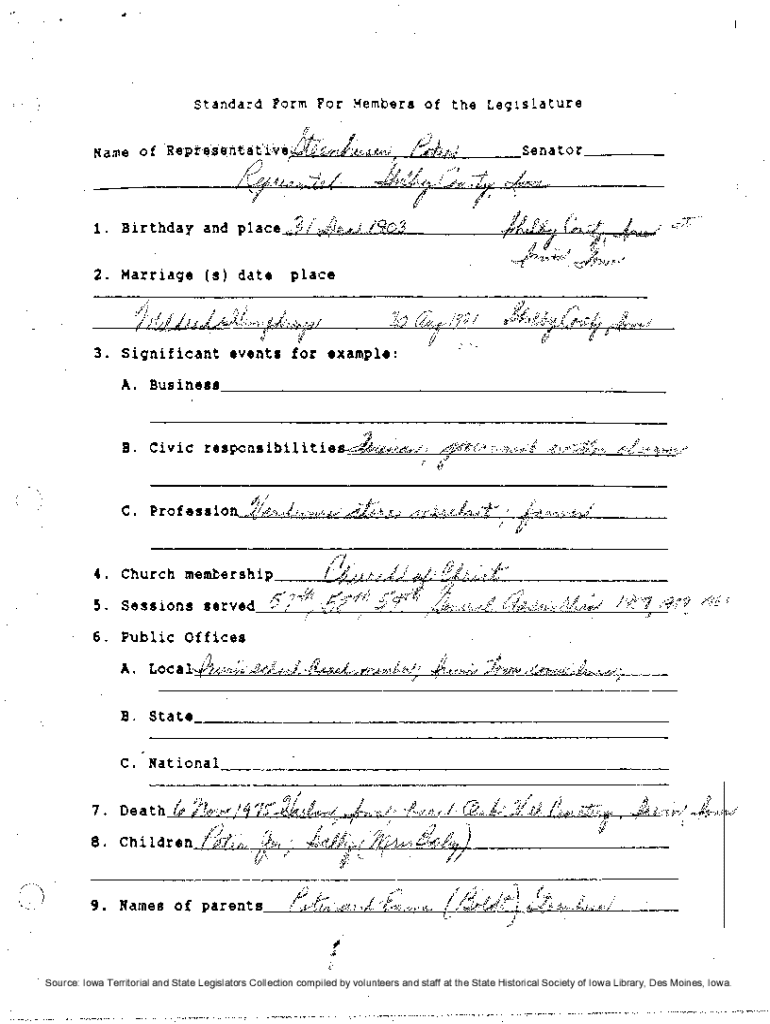 Standard Form For Members of the Legislature
Name of Representative Steenhusen, Peter Senator
Represented Shelby County, Iowa
1. Birthday and place 31 Dec 1903 Shelby County, Iowa at
Irwin, Iowa
2. Marriage (s) date place
30 Aug 1921 Shelby County, Iowa
3. Significant events for example:
A. Business
B. Civic responsibilities
C. Profession Hardware store merchant; farmer
4. Church membership Church of Christ
5. Sessions served 57th, 58th, 59th General Assemblies 1957, 1959, 1961
6. Public Offices
A. Local Irwin school board member; Irwin Town councilman;
B. State
C. National
7. Death 6 Nov 1975 Harlan, Iowa; buried Oak Hill Cemetery, Irwin, Iowa
8. Children Peter Jr.; Sally (Mrs.
9. Names of parents Peter and Emma (Boldt) Steenhusen
Source: Iowa Territorial and State Legislators Collection compiled by volunteers and staff at the State Historical Society of Iowa Library, Des Moines, Iowa.